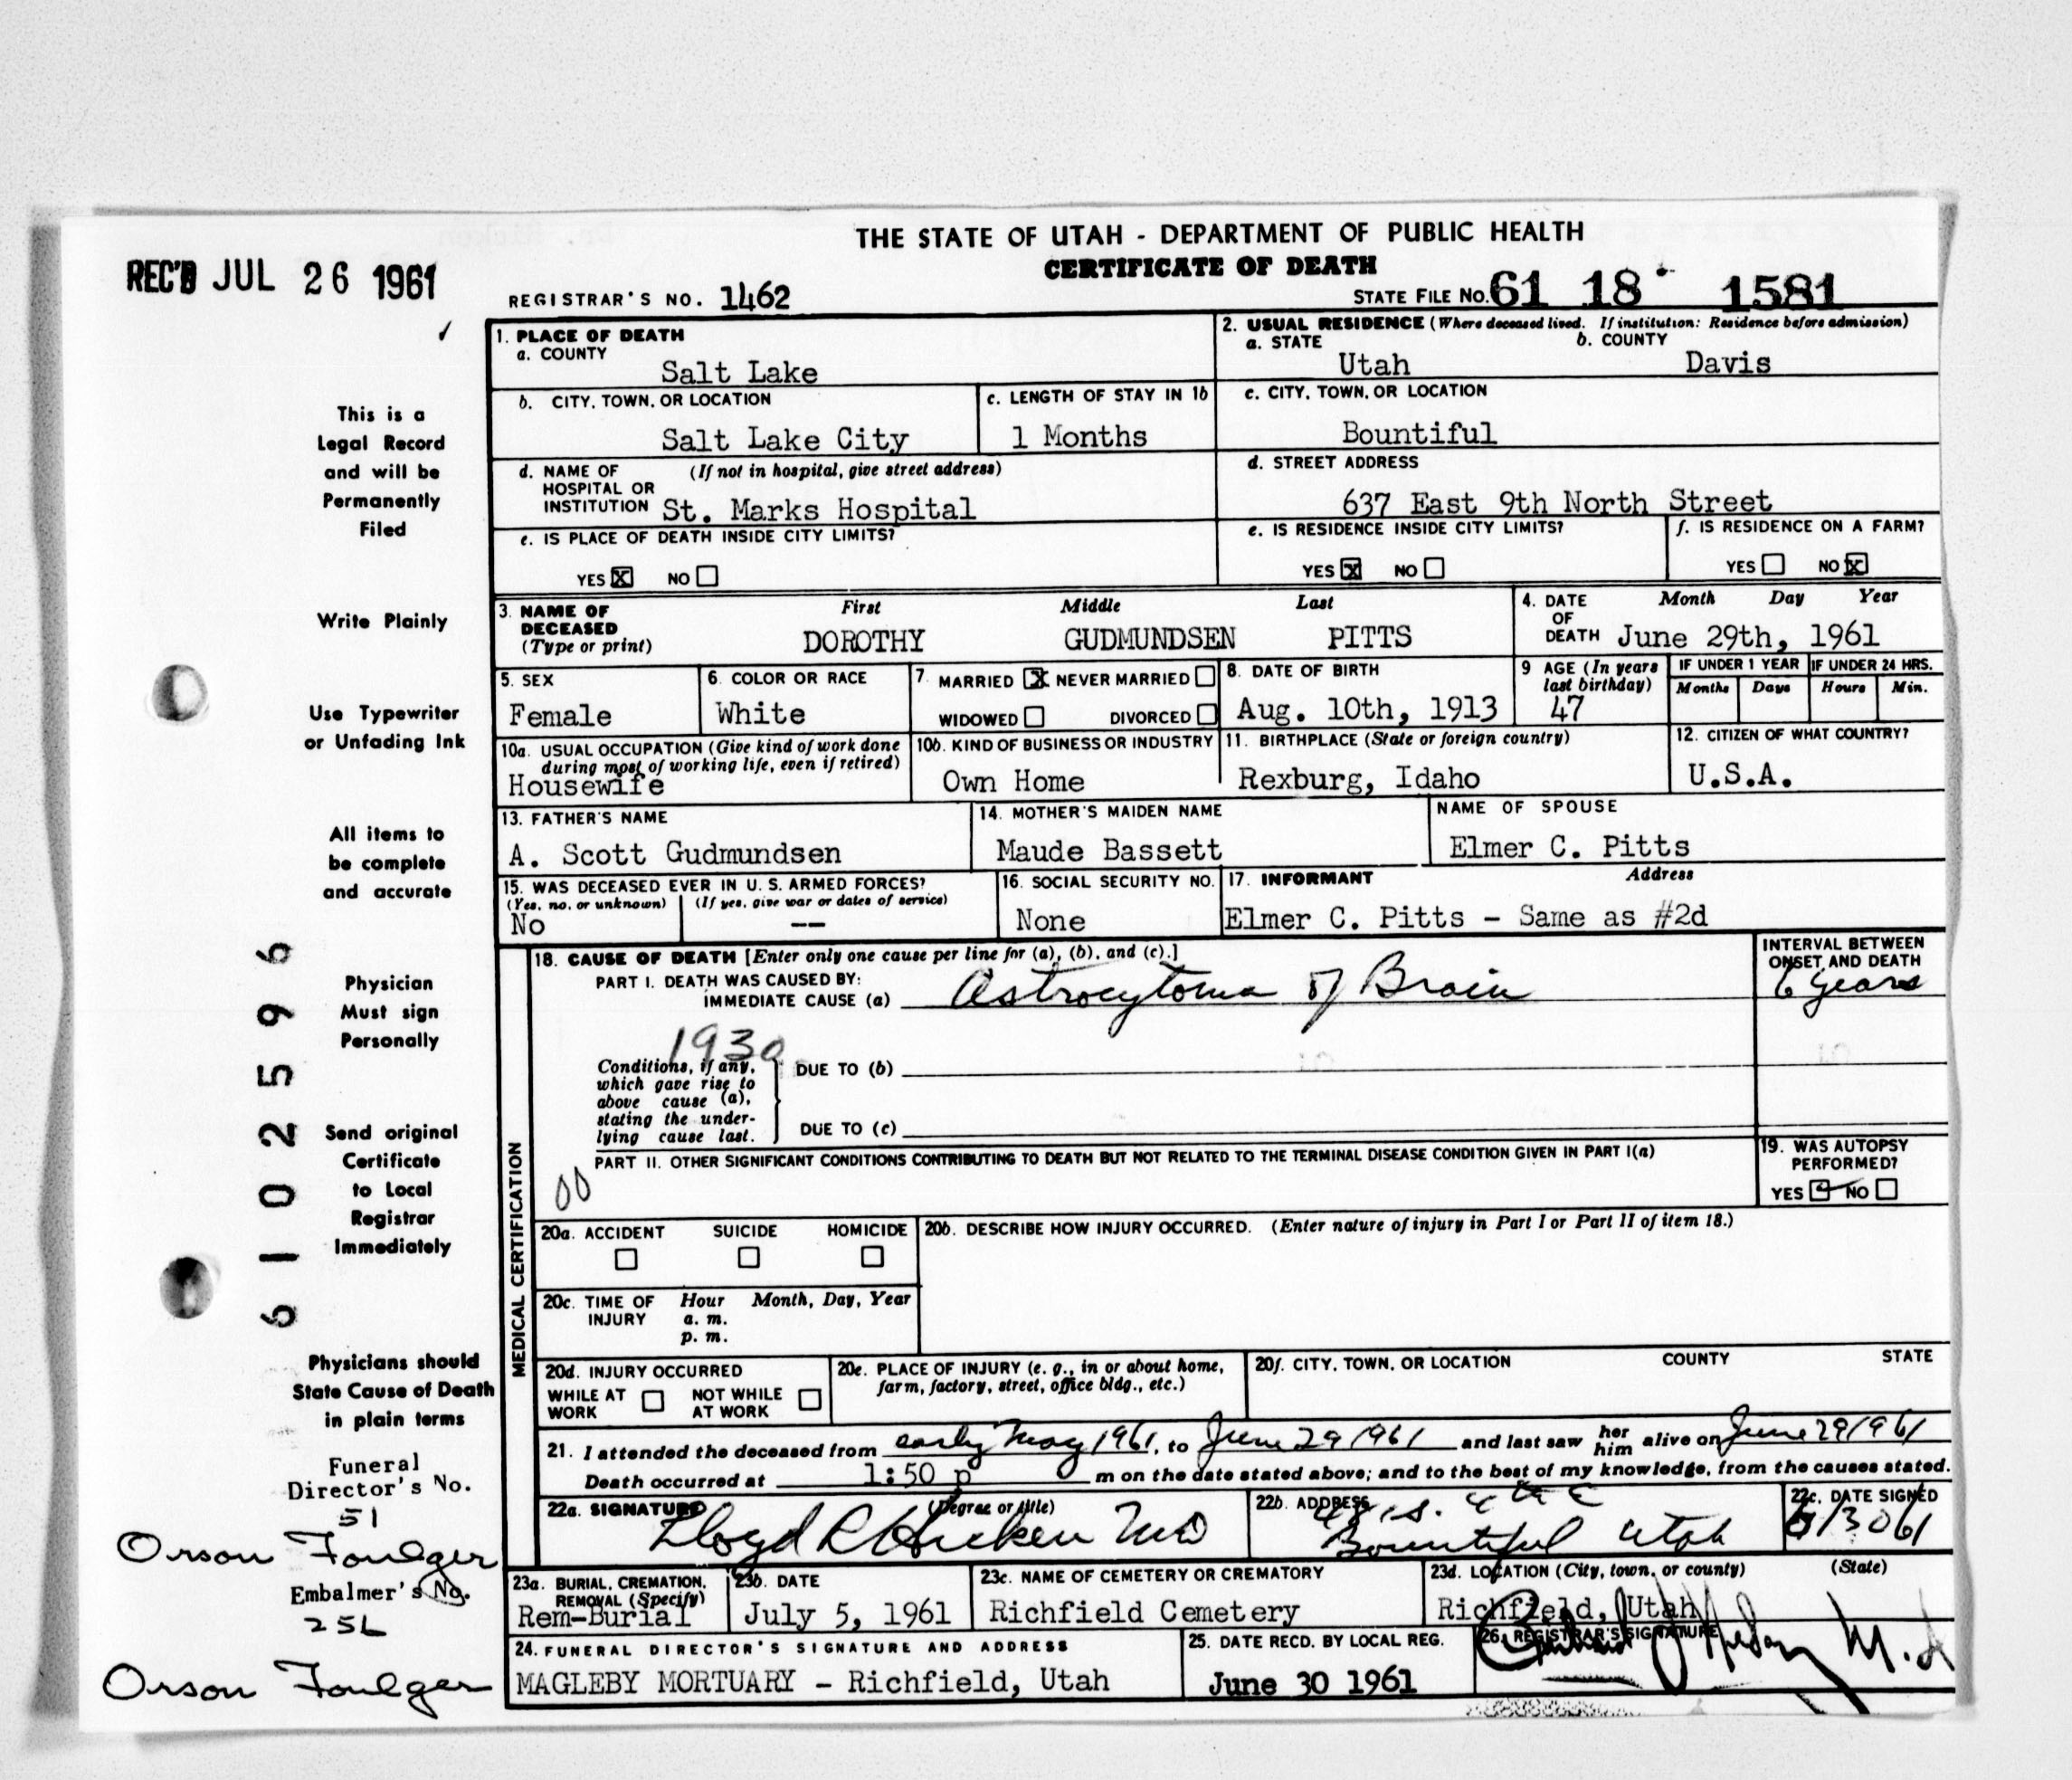 THE STATE OF UTAH - DEPARTMENT OF PUBLIC HEALTH
CERTIFICATE OF DEATH
REC'D JUL 26 1961
REGISTRAR'S NO. 1462
STATE FILE NO. 61 18 1581
This is a
Legal Record
and will be
Permanently
Filed
Write Plainly
Use Typewriter
or Unfading Ink
All items to
be complete
and accurate
Physician
Must sign
Personally
Send original
Certificate
to Local
Registrar
Immediately
Physicians should
State Cause of Death
in plain terms
Funeral
Director's No.
51
Orson Foulger
Embalmer's No.
256
Orson Foulger
6102596
1. PLACE OF DEATH
a. COUNTY
Salt Lake
2. USUAL RESIDENCE (Where deceased lived. If institution: Residence before admission)
a. STATE b. COUNTY
Utah Davis
b. CITY, TOWN, OR LOCATION
Salt Lake City
c. LENGTH OF STAY IN 1b
1 Months
c. CITY, TOWN, OR LOCATION
Bountiful
d. NAME OF (If not in hospital, give street address)
HOSPITAL OR
INSTITUTION St. Marks Hospital
d. STREET ADDRESS
637 East 9th North Street
e. IS PLACE OF DEATH INSIDE CITY LIMITS?
YES X NO
e. IS RESIDENCE INSIDE CITY LIMITS?
YES X NO
f. IS RESIDENCE ON A FARM?
YES NO X
3. NAME OF DECEASED (Type or print)
First Middle Last
DOROTHY GUDMUNDSEN PITTS
4. DATE OF DEATH Month Day Year
June 29th, 1961
5. SEX
Female
6. COLOR OR RACE
White
7. MARRIED X NEVER MARRIED
WIDOWED DIVORCED
8. DATE OF BIRTH
Aug. 10th, 1913
9 AGE (In years last birthday)
47
IF UNDER 1 YEAR IF UNDER 24 HRS.
Months Days Hours Min.
10a. USUAL OCCUPATION (Give kind of work done
during most of working life, even if retired)
Housewife
10b. KIND OF BUSINESS OR INDUSTRY
Own Home
11. BIRTHPLACE (State or foreign country)
Rexburg, Idaho
12. CITIZEN OF WHAT COUNTRY?
U.S.A.
13. FATHER'S NAME
A. Scott Gudmundsen
14. MOTHER'S MAIDEN NAME
Maude Bassett
NAME OF SPOUSE
Elmer C. Pitts
15. WAS DECEASED EVER IN U. S. ARMED FORCES?
(Yes, no, or unknown) (If yes, give war or dates of service)
No --
16. SOCIAL SECURITY NO.
None
17. INFORMANT Address
Elmer C. Pitts - Same as #2d
MEDICAL CERTIFICATION
18. CAUSE OF DEATH [Enter only one cause per line for (a), (b), and (c).]
PART I. DEATH WAS CAUSED BY:
IMMEDIATE CAUSE (a) Astrocytoma of Brain
INTERVAL BETWEEN
ONSET AND DEATH
6 years
1930
Conditions, if any,
which gave rise to
above cause (a),
stating the under-
lying cause last.
DUE TO (b)
DUE TO (c)
PART II. OTHER SIGNIFICANT CONDITIONS CONTRIBUTING TO DEATH BUT NOT RELATED TO THE TERMINAL DISEASE CONDITION GIVEN IN PART I(a)
00
19. WAS AUTOPSY
PERFORMED?
YES NO
20a. ACCIDENT SUICIDE HOMICIDE
20b. DESCRIBE HOW INJURY OCCURRED. (Enter nature of injury in Part I or Part II of item 18.)
20c. TIME OF INJURY Hour Month, Day, Year
a. m.
p. m.
20d. INJURY OCCURRED
WHILE AT WORK NOT WHILE AT WORK
20e. PLACE OF INJURY (e. g., in or about home,
farm, factory, street, office bldg., etc.)
20f. CITY, TOWN, OR LOCATION COUNTY STATE
21. I attended the deceased from early May 1961, to June 29 1961 and last saw her him alive on June 29 1961
Death occurred at 1:50 p m on the date stated above; and to the best of my knowledge, from the causes stated.
22a. SIGNATURE (Degree or title)
Lloyd R Hicken MD
22b. ADDRESS
S. 4th E
Bountiful Utah
22c. DATE SIGNED
6/30 61
23a. BURIAL, CREMATION,
REMOVAL (Specify)
Rem-Burial
23b. DATE
July 5, 1961
23c. NAME OF CEMETERY OR CREMATORY
Richfield Cemetery
23d. LOCATION (City, town, or county) (State)
Richfield, Utah
24. FUNERAL DIRECTOR'S SIGNATURE AND ADDRESS
MAGLEBY MORTUARY - Richfield, Utah
25. DATE RECD. BY LOCAL REG.
June 30 1961
26. REGISTRAR'S SIGNATURE
M.D